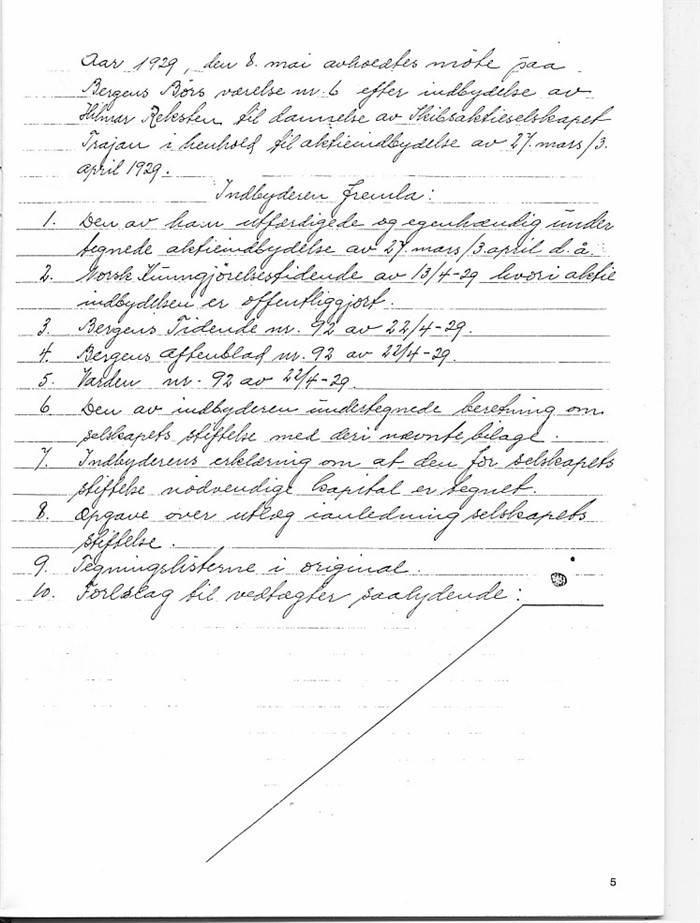 Aar 1929, den 8. mai avholdtes möte paa
Bergens Börs værelse nr. 6 efter indbydelse av
Hilmar Reksten til dannelse av Skibsaktieselskapet
Trajan i henhold til aktieindbydelse av 27. mars/3.
april 1929.
Indbyderen fremla:
1. Den av ham utfærdigede og egenhændig under
tegnede aktieindbydelse av 27. mars/3 april d.å.
2. Norsk Kunngjörelsestidende av 13/4-29 hvori aktie
indbydelsen er offentliggjort.
3. Bergens Tidende nr. 92 av 22/4-29.
4. Bergens Aftenblad nr. 92 av 22/4-29.
5. Varden nr. 92 av 22/4-29.
6. Den av indbyderen undertegnede beretning om
selskapets stiftelse med deri nævnte bilage.
7. Indbyderens erklæring om at den for selskapets
stiftelse nödvendige kapital er tegnet.
8. Opgave over utlæg i anledning selskapets
stiftelse.
9. Tegningslisterne i original.
10. Forslag til vedtægter saalydende:
5